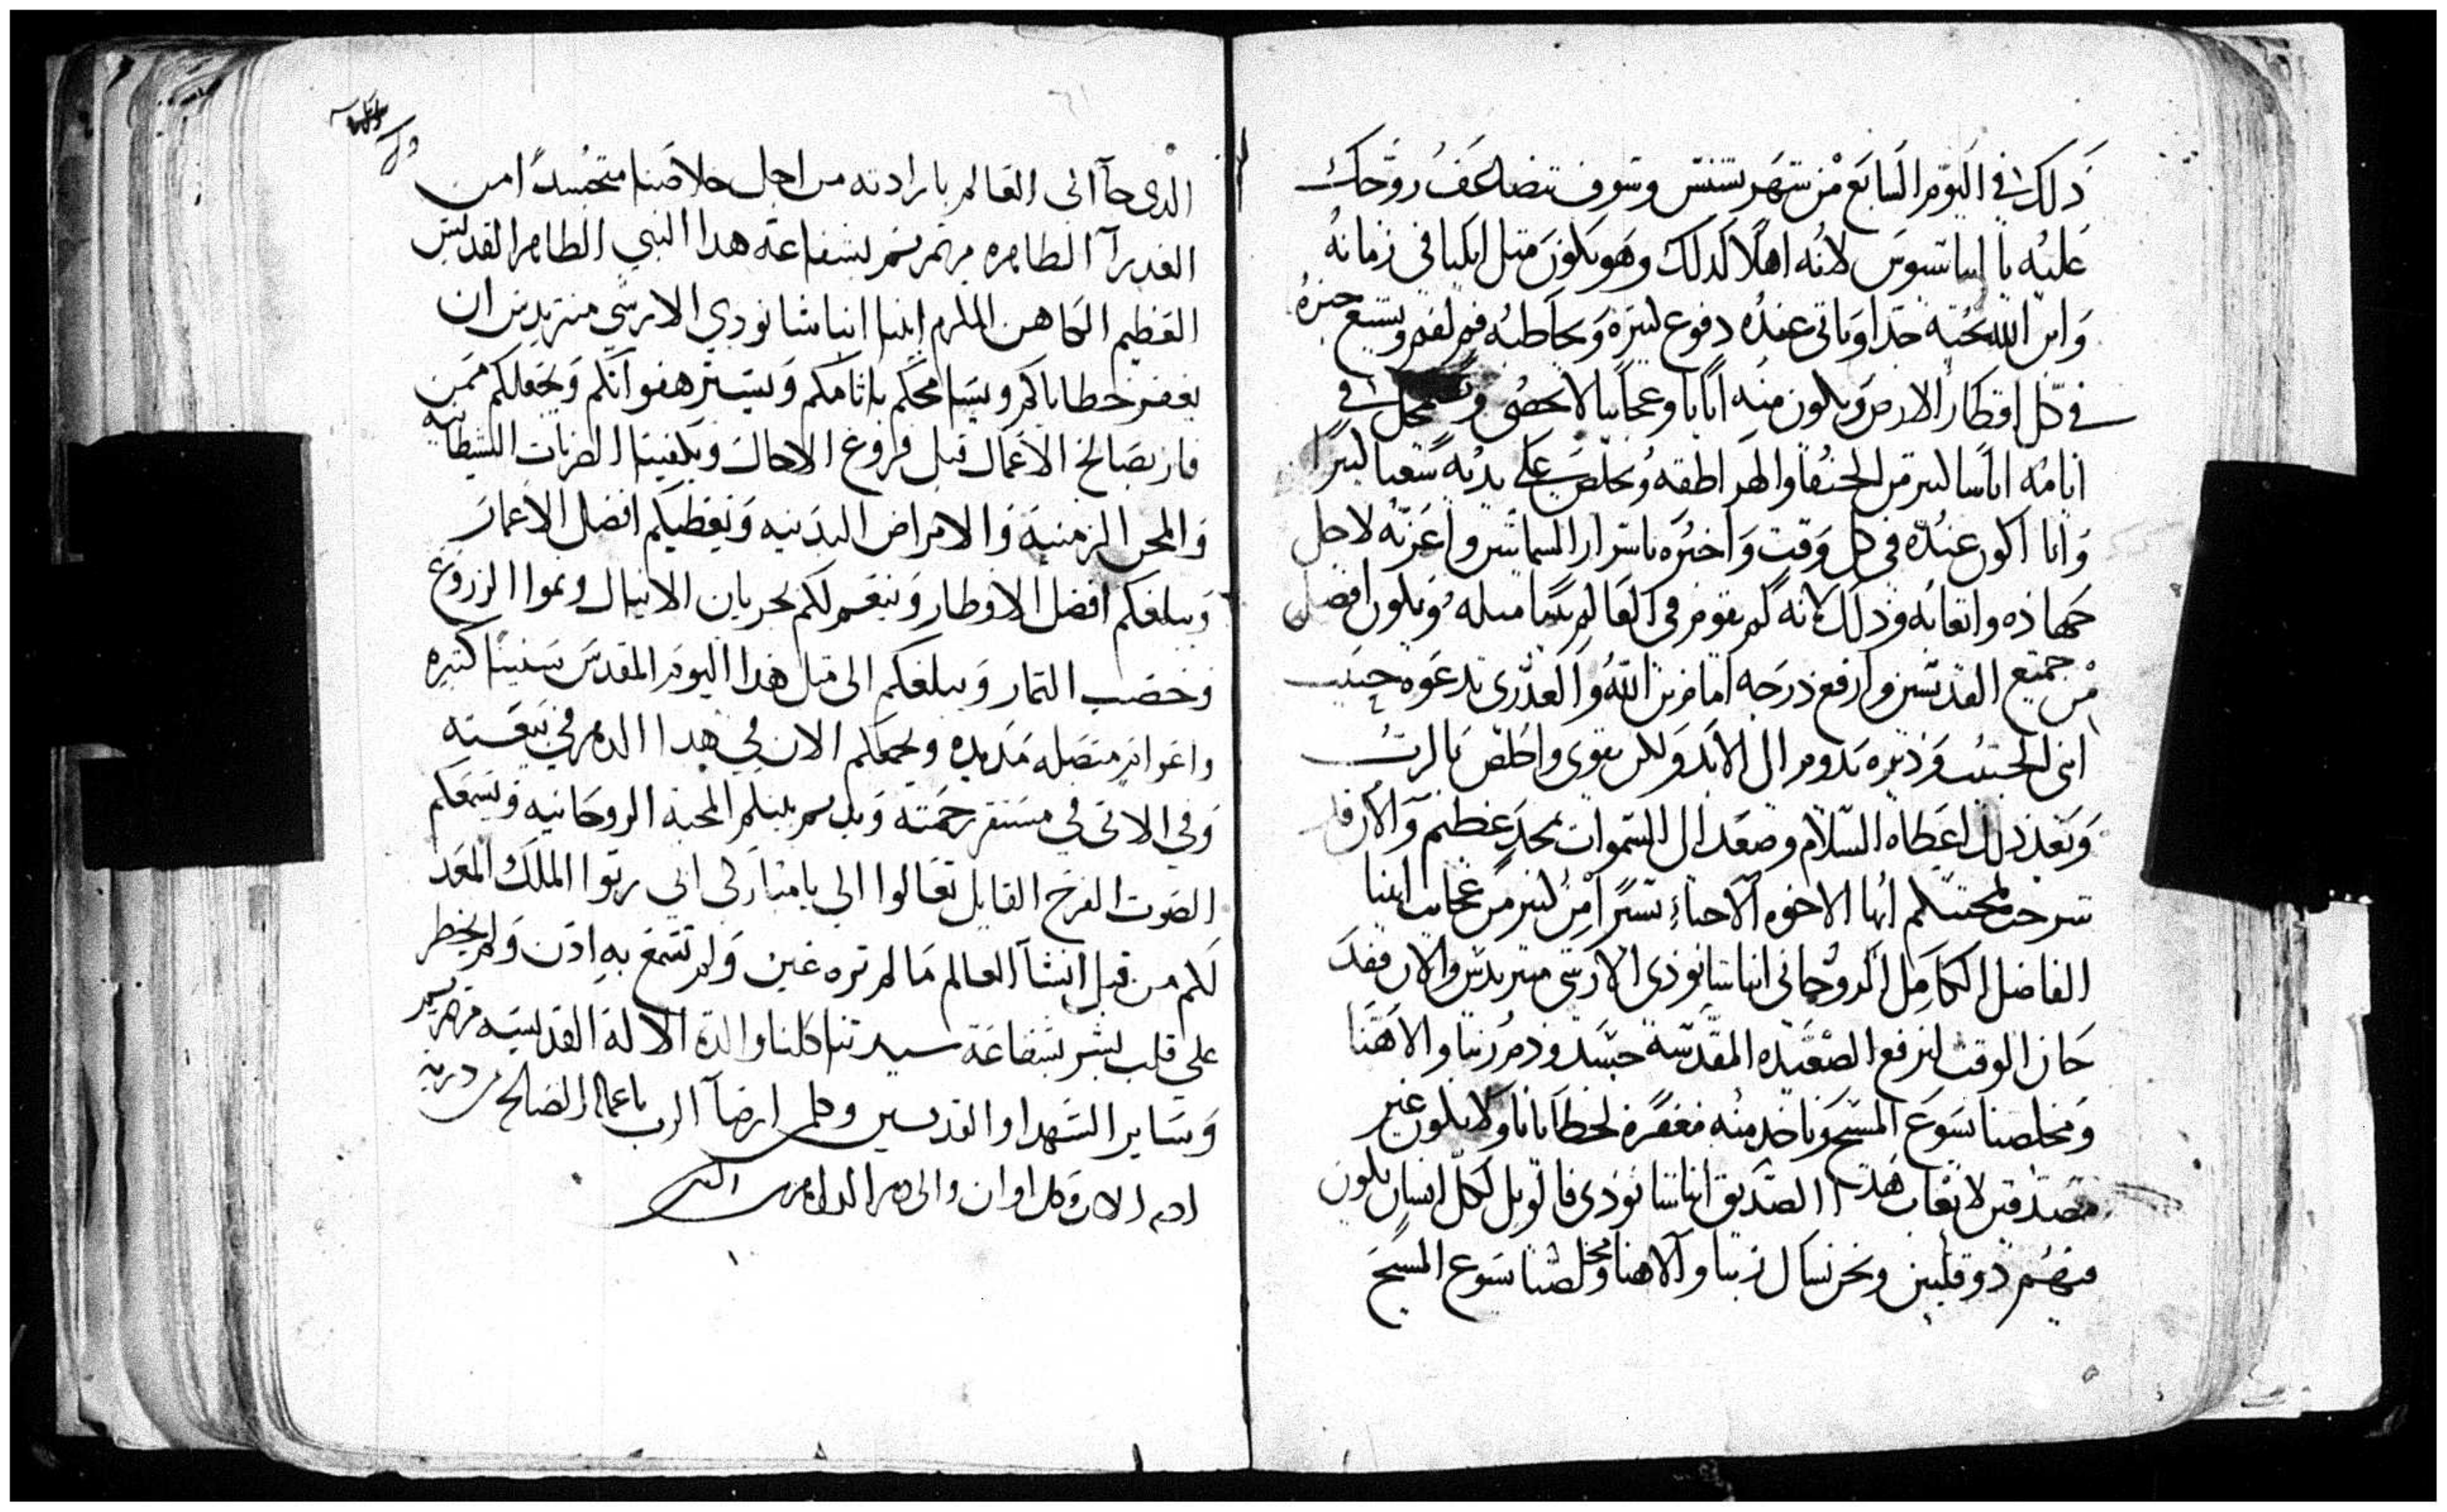 ذلك في اليوم السابع من شهر بشنس وسوف تتضاعف روحك
عليه يا ابيا لانه اهلا لذلك وهو يكون متل ايليا في زمانه
وابن الله يحبه جدا وياتي عنده دفوع كتيره ويخاطبه فم لفم ويشيع خبره
في كل اقطار الارض ويكون منه ايات وعجايبا لا تحصى في
ايامه اناسا كتير من الحنفا والهراطقه ويخلص على يديه شعبا كتيرا
وانا اكون عنده في كل وقت واخبره باسرار السمايين واعزيه لاجل
جهاده واتعابه وذلك لانه لم يقوم في العالم متله ويكون افضل
من جميع القديسين وارفع درجه اما من ابن الله والعدرى يدعوه حبيب
ابني الحبيب وديره يدوم الى الابد ولكن يقوى واخلص بالرب
وبعد ذلك اعطاه السلام وصعد الى السموات بمجد عظيم والان قد
شرحت لمحبتكم ايها الاخوه الاحباء يسيرا من كتير من عجايب ابينا
الفاضل الكامل الروحاني انبا شانودي الارشي متريدس والان فقد
حان الوقت لنرفع الصعيده المقدسه جسد ودم ربنا والاهنا
ومخلصنا يسوع المسيح وناخد منه مغفره لخطايانا ولا نكون غير
مصدقين لاتعاب هدا الصديق انبا شانودي فالويل لكل انسان يكون
منهم دو قلبين ونحن نسال ربنا والاهنا ومخلصنا يسوع المسيح
الدي جآ الى العالم بارادته من اجل خلاصنا متجسدا من
العدرآ الطاهره مرتمريم بشفاعة هدا النبي الطاهر القديس
العظيم الكاهن المكرم ابينا انبا شانودي الارشي متريدس ان
يغفر خطاياكم ويسامحكم باثامكم ويستر هفواتكم ويجعلكم ممن
فاز بصالح الاعمال قبل فروغ الاجال ويكفينا الضربات الشيطانيه
والمحن الزمنية والامراض البدنيه ويعطيكم افضل الاعمار
ويبلغكم افضل الاوطار وينعم لكم بجريان الانيال ونموا الزروع
وخصب التمار ويبلغكم الى متل هدا اليوم المقدس سنينا كتيره
واعوام متصله مديده ويجمعكم الان في هدا الدهر في بيعته
وفي الاتي في مستقر رحمته ويديم بينكم المحبة الروحانيه ويسمعكم
الصوت الفرح القايل تعالوا الي يا مباركي ابي ريوا الملك المعد
لكم من قبل انشآ العالم ما لم تره عين ولم تسمع به ادن ولم يخطر
على قلب بشر بشفاعة سيدتنا كلنا والدة الالة القديسه مرتمريم
وساير الشهدا والقديسين وكلمن ارضآ الرب باعماله الصالحه من درية
ادم الان وكل اوان والى دهر الداهرين امين